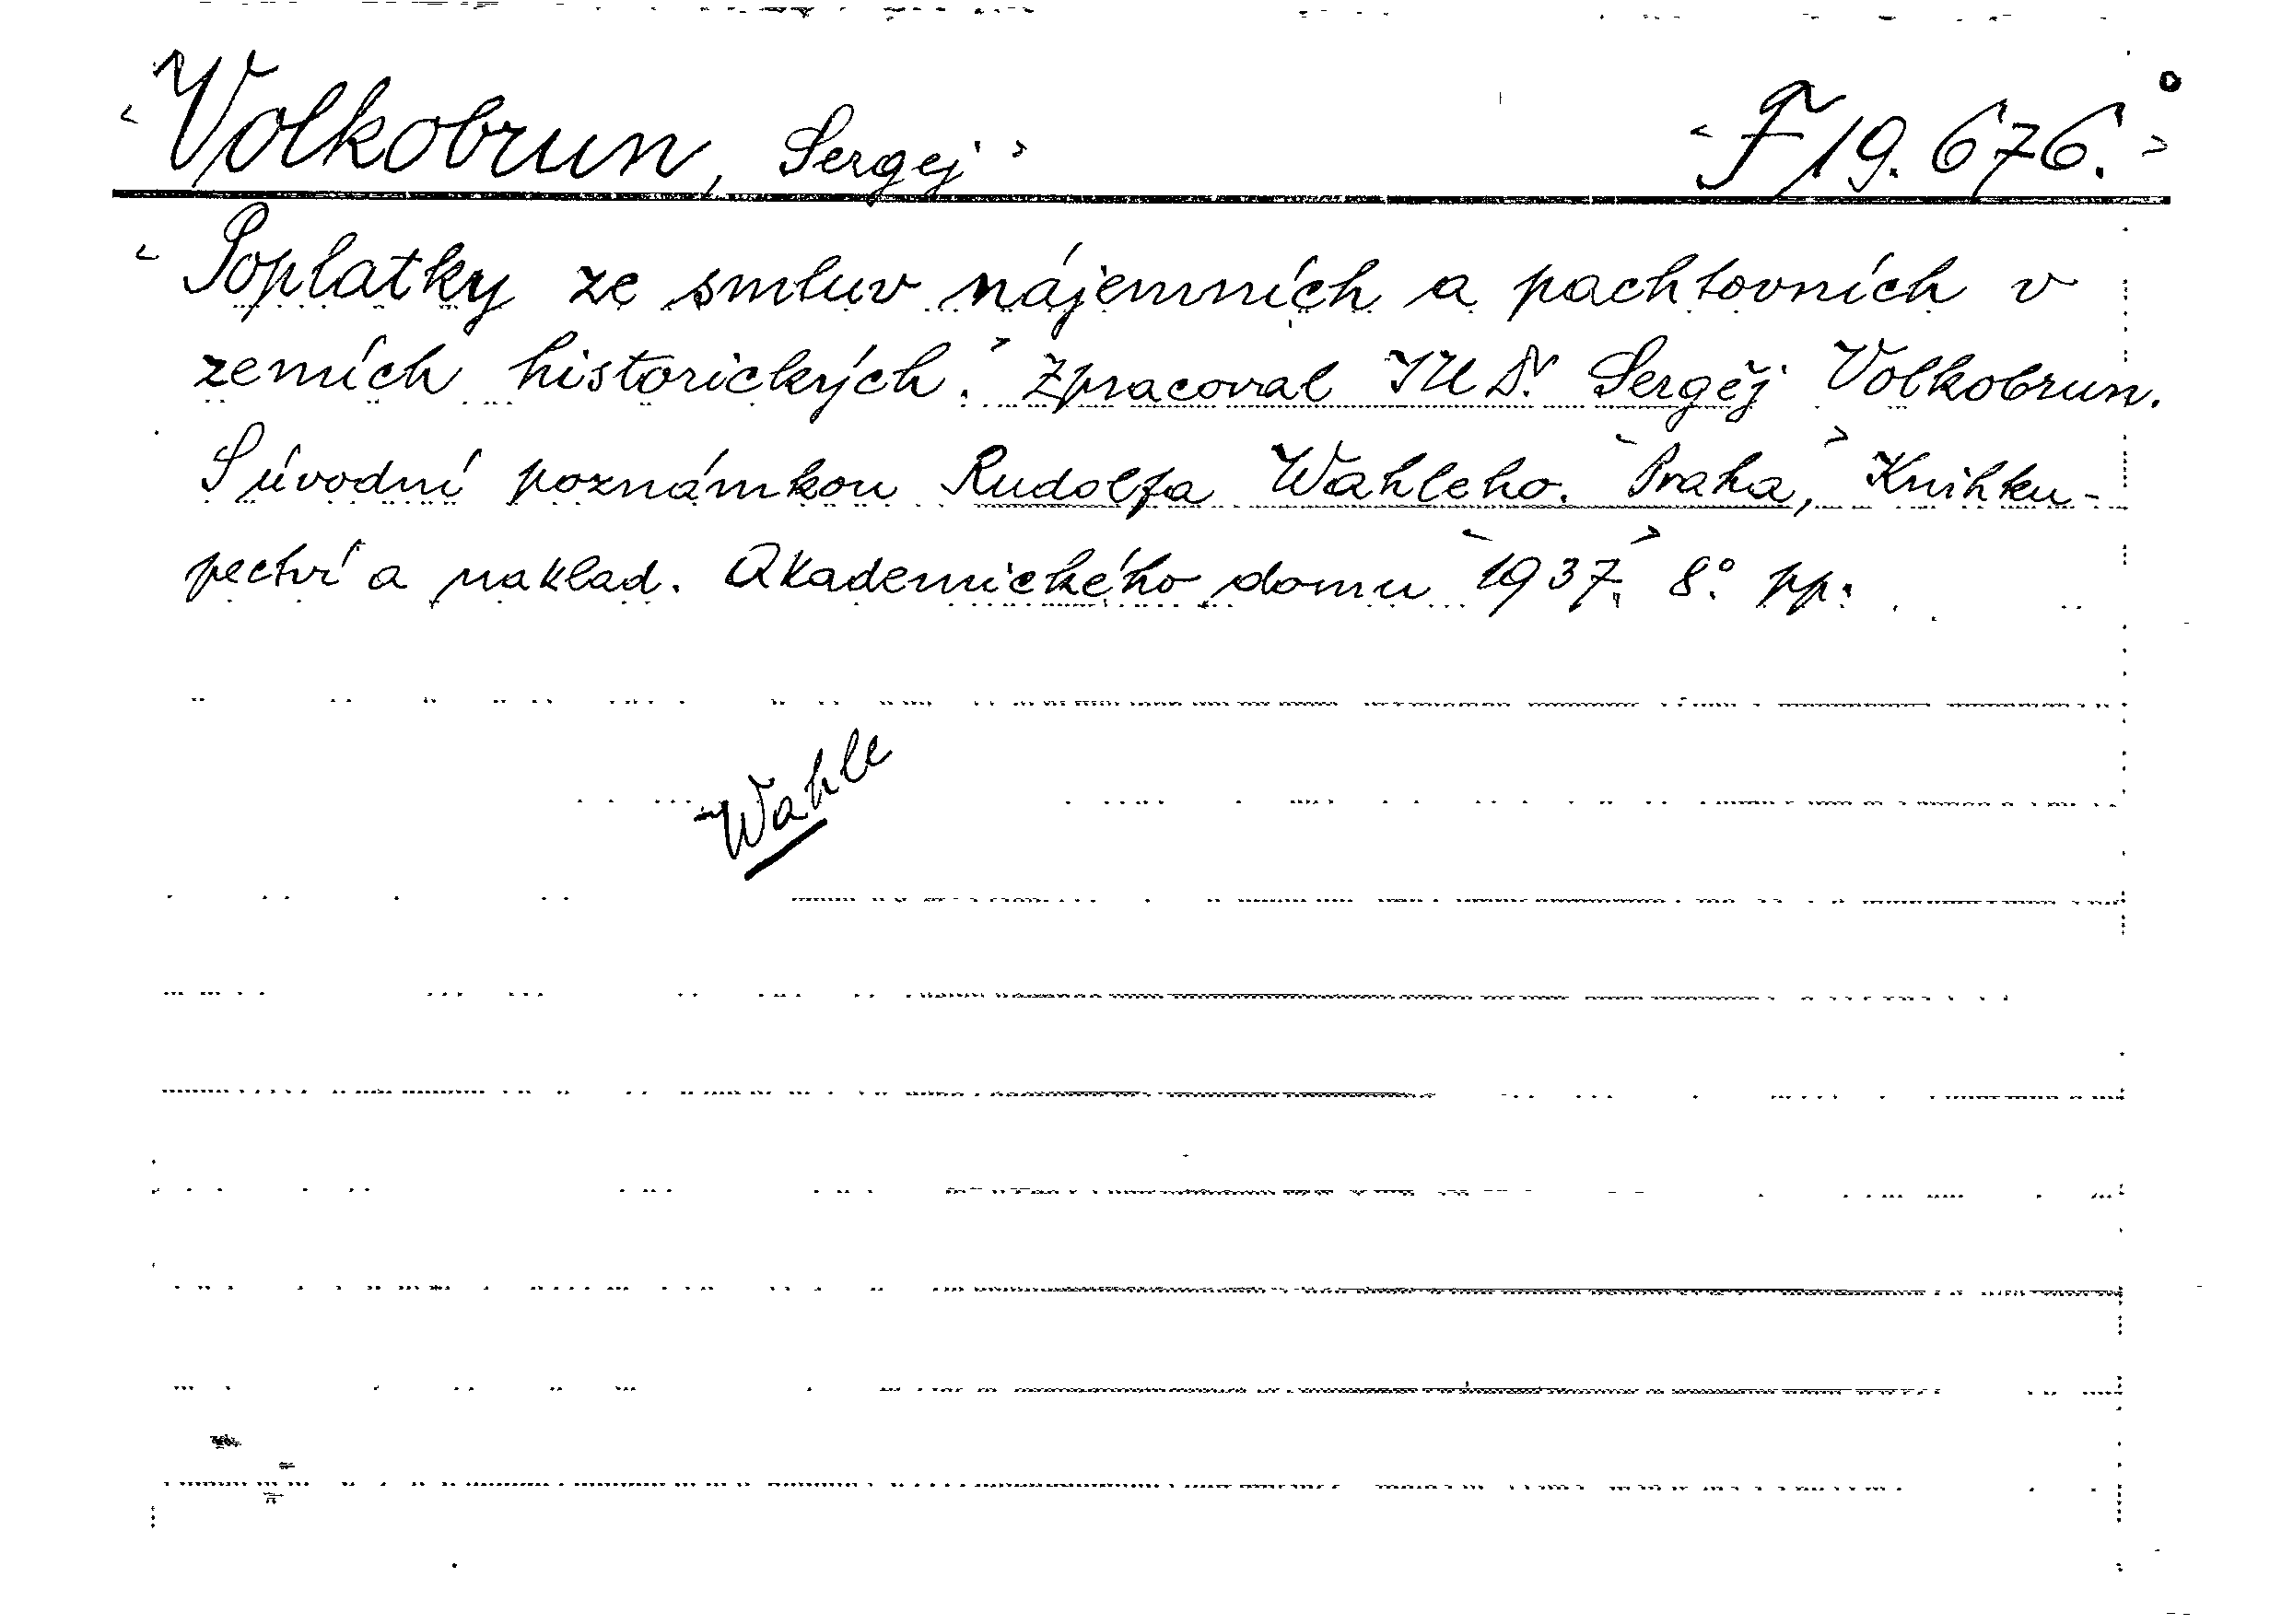 Volkobrun, Sergej F 19.676.
Poplatky ze smluv nájemních a pachtovních v
zemích historických. Zpracoval JUDr. Sergěj Volkobrun.
S úvodní poznámkou Rudolfa Wahleho. Praha, Knihku-
pectví a naklad. Akademického domu 1937. 8°. pp.
Wahle